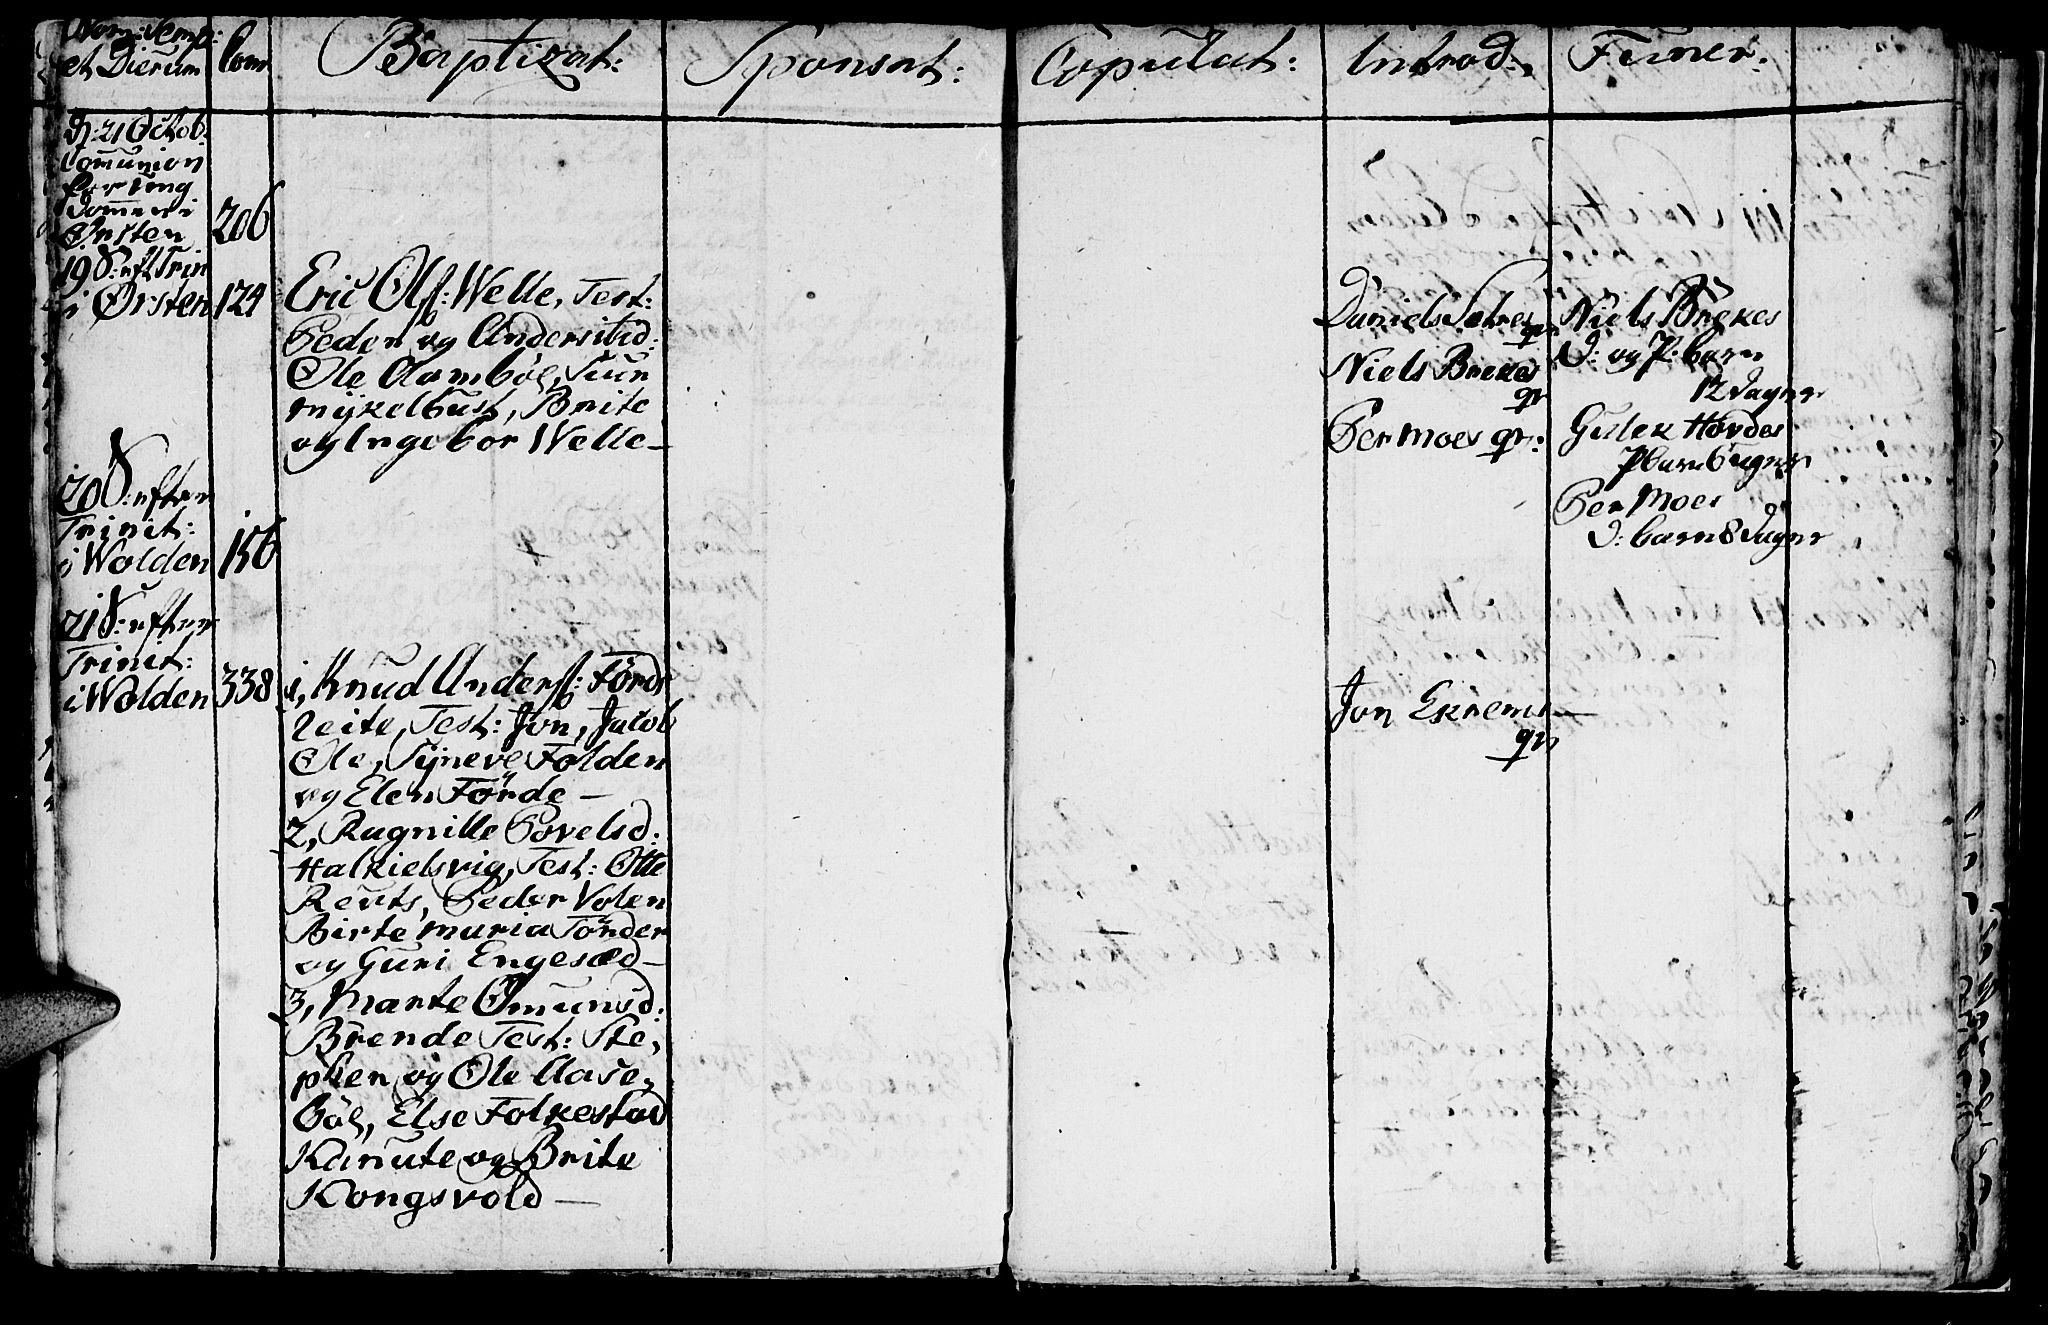 Nom: Temp:
et Dierum
Com
Baptizat:
Sponsat:
Copulat:
Introd:
Funer:
D: 21 Octob.
Comunion
for ung
dommen i
Ørsten
206
19 S: eft Trin
i Ørsten
124
Eric Olss: Welle, Test:
Peder og Anders ibid:
Ole Aambøe, Siur
mykelbust, Brite
og Ingebor Welle –
Daniels Sætres
qv
Niels Brekes
qv
Per Moes qv:
Niels Brekes
D: og P: barn
12 dager
Gulek Hovdes
P barn 6 uger
Per Moes
D: barn 8 dager
20 S: efter
Trinit:
i Wolden
156
21 S: efter
Trinit:
i Wolden
338
1, Knud Anderss: Førde
reite, Test: Jon, Jacob
Ole, Syneve Folden
og Elen Førde –
2, Ragnille Povelsd:
Halkielsvig, Test: Otte
Reuts, Peder Volen
Birte maria Tønder
og Guri Engesæd –
3, Marte Omunsd:
Brende Test: Ste,
phen og Ole Aase,
bøe, Else Folkestad
Kanute og Brite
Kongsvold –
Jon Ekrems –
qv